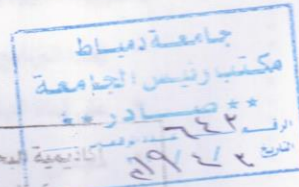 جامعة دمياط
مكتب رئيس الجامعة
** صادر **
الرقم ٦٤٢
التاريخ ٣ / ٤ /
كاديمية البح